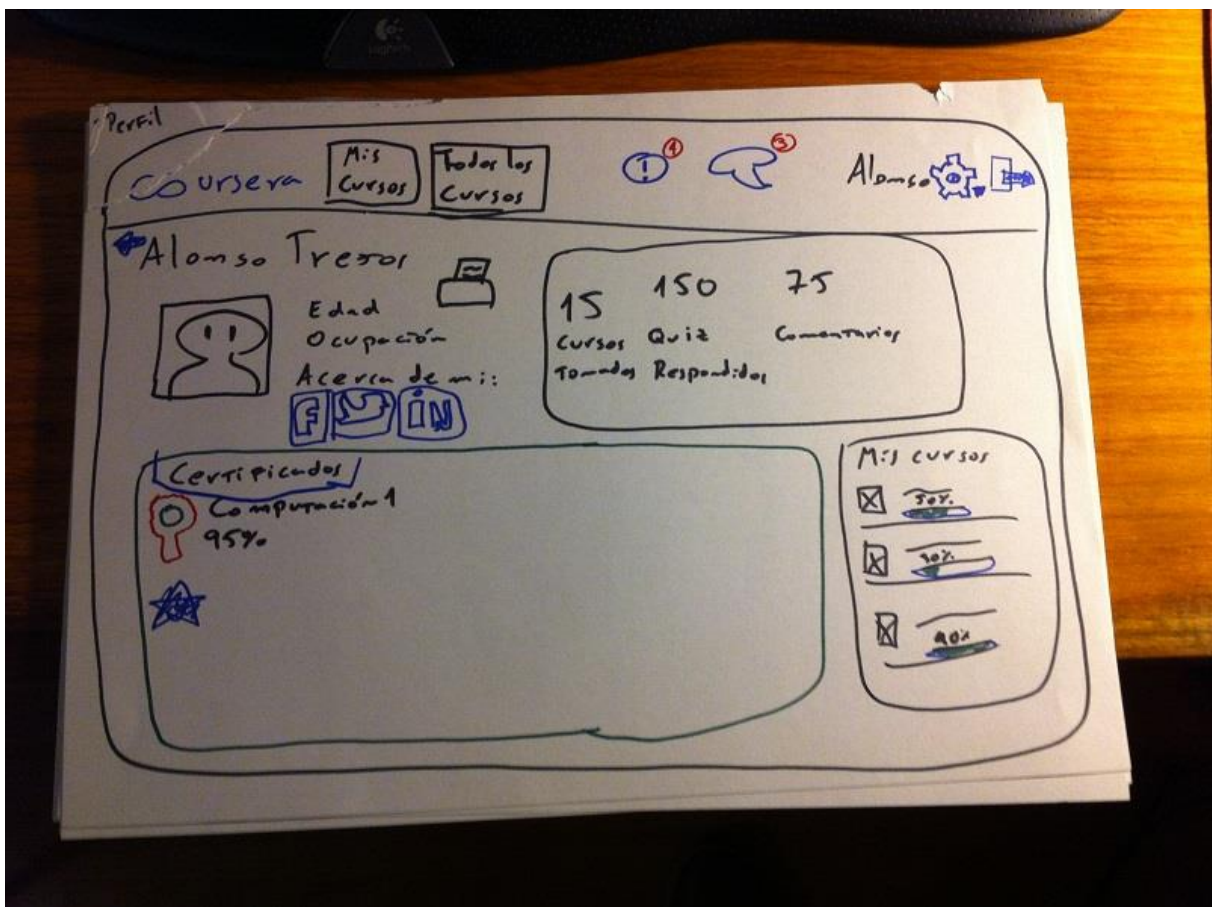 Logitech
Perfil
coursera
Mis
Cursos
Todos los
Cursos
!
1
3
Alonso
Alonso Tresor
Edad
Ocupación
Acerca de mi:
F
in
15
Cursos
Tomados
150
Quiz
Respondidos
75
Comentarios
Certificados
Computación 1
95%
Mis cursos
50%
30%
90%